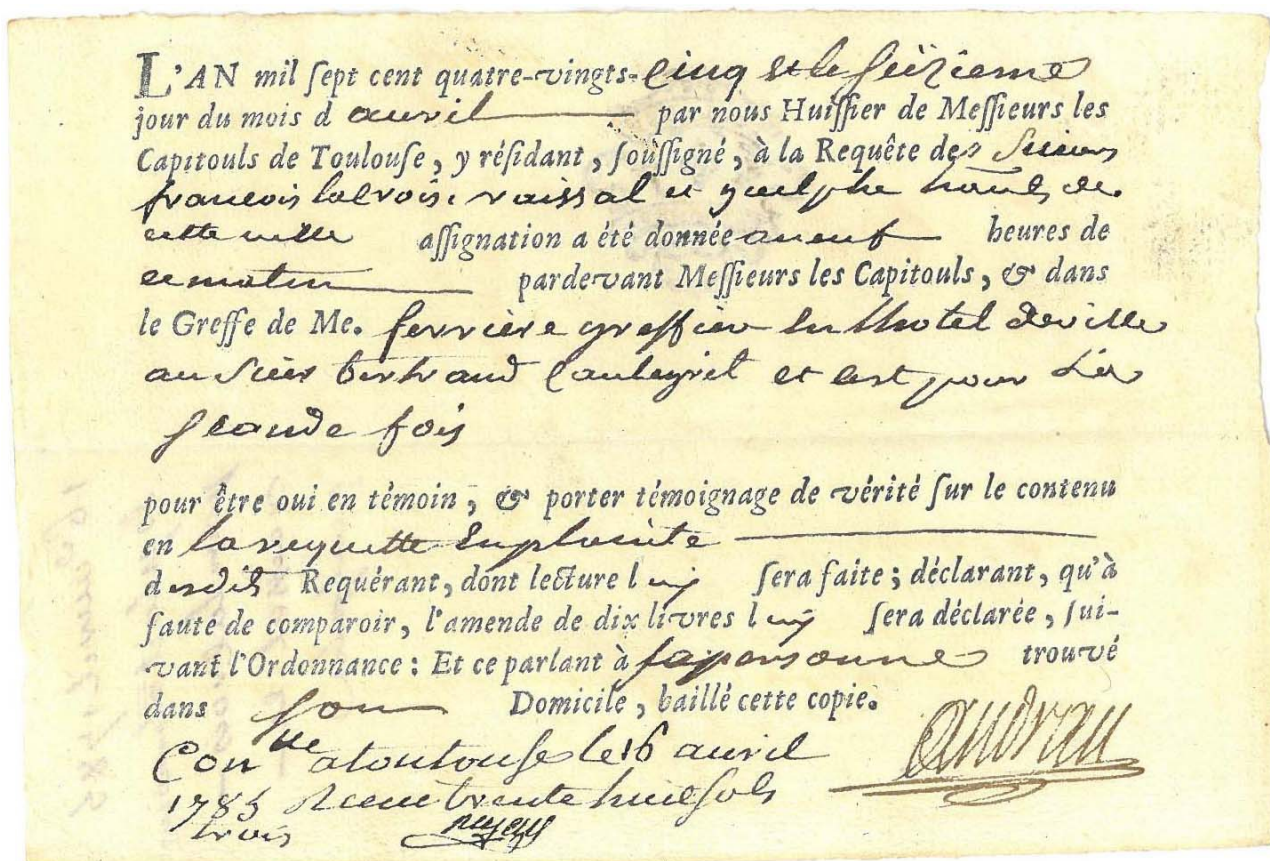 L'AN mil ſept cent quatre-vingts-cinq et le ſeizieme
jour du mois d auvril par nous Huiſſier de Meſſieurs les
Capitouls de Toulouſe, y réſidant, ſouſſigné, à la Requête des Sieurs
francois lacroix, vaissal et habts de
cette ville aſſignation a été donnée a neuf heures de
ce matin pardevant Meſſieurs les Capitouls, & dans
le Greffe de Me. ferriere greffier en lhotel de ville
au Sieur bertrand et cest pour la
ſeconde fois
pour être oui en témoin, & porter témoignage de vérité ſur le contenu
en la requette en plainte
desdits Requérant, dont lecture luy ſera faite; déclarant, qu'à
faute de comparoir, l'amende de dix livres luy ſera déclarée, ſui-
vant l'Ordonnance: Et ce parlant à ſa personne trouvé
dans ſon Domicile, baillé cette copie.
Conlle a toulouſe le 16 auvril
1785 Receu trente huit ſols
trois